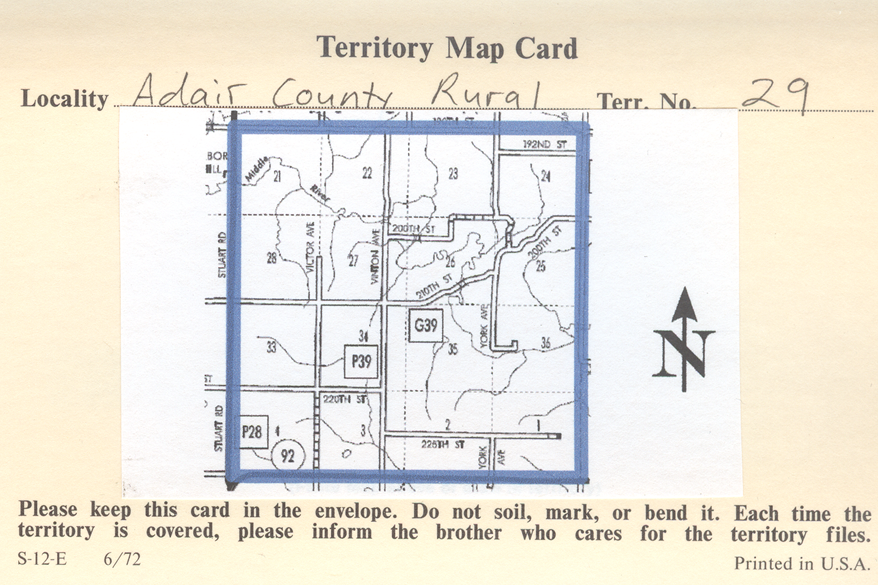 Territory Map Card
Locality Adair County Rural Terr. No. 29
192ND ST
Middle
River
21
22
23
24
200TH ST
200TH ST
STUART RD
VICTOR AVE
VINTON AVE
28
27
26
25
210TH ST
G39
YORK AVE
33
34
35
36
P39
220TH ST
STUART RD
P28
4
3
2
1
92
225TH ST
YORK AVE
N
Please keep this card in the envelope. Do not soil, mark, or bend it. Each time the
territory is covered, please inform the brother who cares for the territory files.
S-12-E 6/72 Printed in U.S.A.